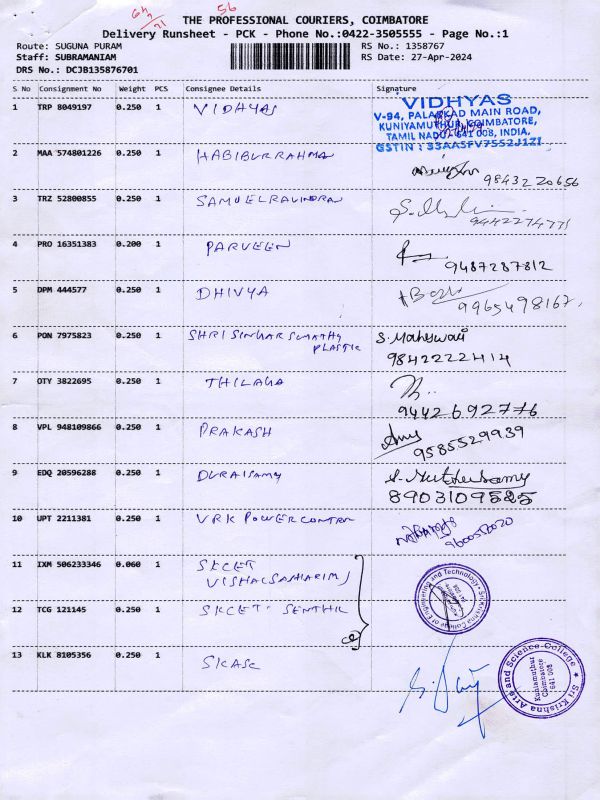 56
THE PROFESSIONAL COURIERS, COIMBATORE
Delivery Runsheet - PCK - Phone No.:0422-3505555 - Page No.:1
Route: SUGUNA PURAM RS No.: 1358767
Staff: SUBRAMANIAM RS Date: 27-Apr-2024
DRS No.: DCJB135876701
S.No Consignment No Weight PCS Consignee Details Signature
1 TRP 8049197 0.250 1 VIDHYAS
VIDHYAS
V-94, PALAKKAD MAIN ROAD,
KUNIYAMUTHUR, COIMBATORE,
TAMIL NADU- 641 008, INDIA,
GSTIN : 33AASFV7552J1ZI
2 MAA 574801226 0.250 1 HABIBURRAHMAN
9843220656
3 TRZ 52800855 0.250 1 SAMUELRAVINDRAN
9442274771
4 PRO 16351383 0.200 1 PARVEEN
9487287812
5 DPM 444577 0.250 1 DHIVYA
9965498167
6 PON 7975823 0.250 1 SHRI SINGAR SUMATHY S. Maheswari
PLASTIC 9842222414
7 OTY 3822695 0.250 1 THILAGA
9442692776
8 VPL 948109866 0.250 1 PRAKASH
9585529939
9 EDQ 20596288 0.250 1 DURAISAMY S. Muthusamy
8903109525
10 UPT 2211381 0.250 1 VRK POWER CONTROL
11 IXM 506233346 0.060 1 SKCET
12 TCG 121145 0.250 1 SKCET- SENTHIL
Sri Krishna College of Engineering and Technology
13 KLK 8105356 0.250 1 SKASC
Sri Krishna Arts and Science College
Kuniamuthur
Coimbatore
641 008